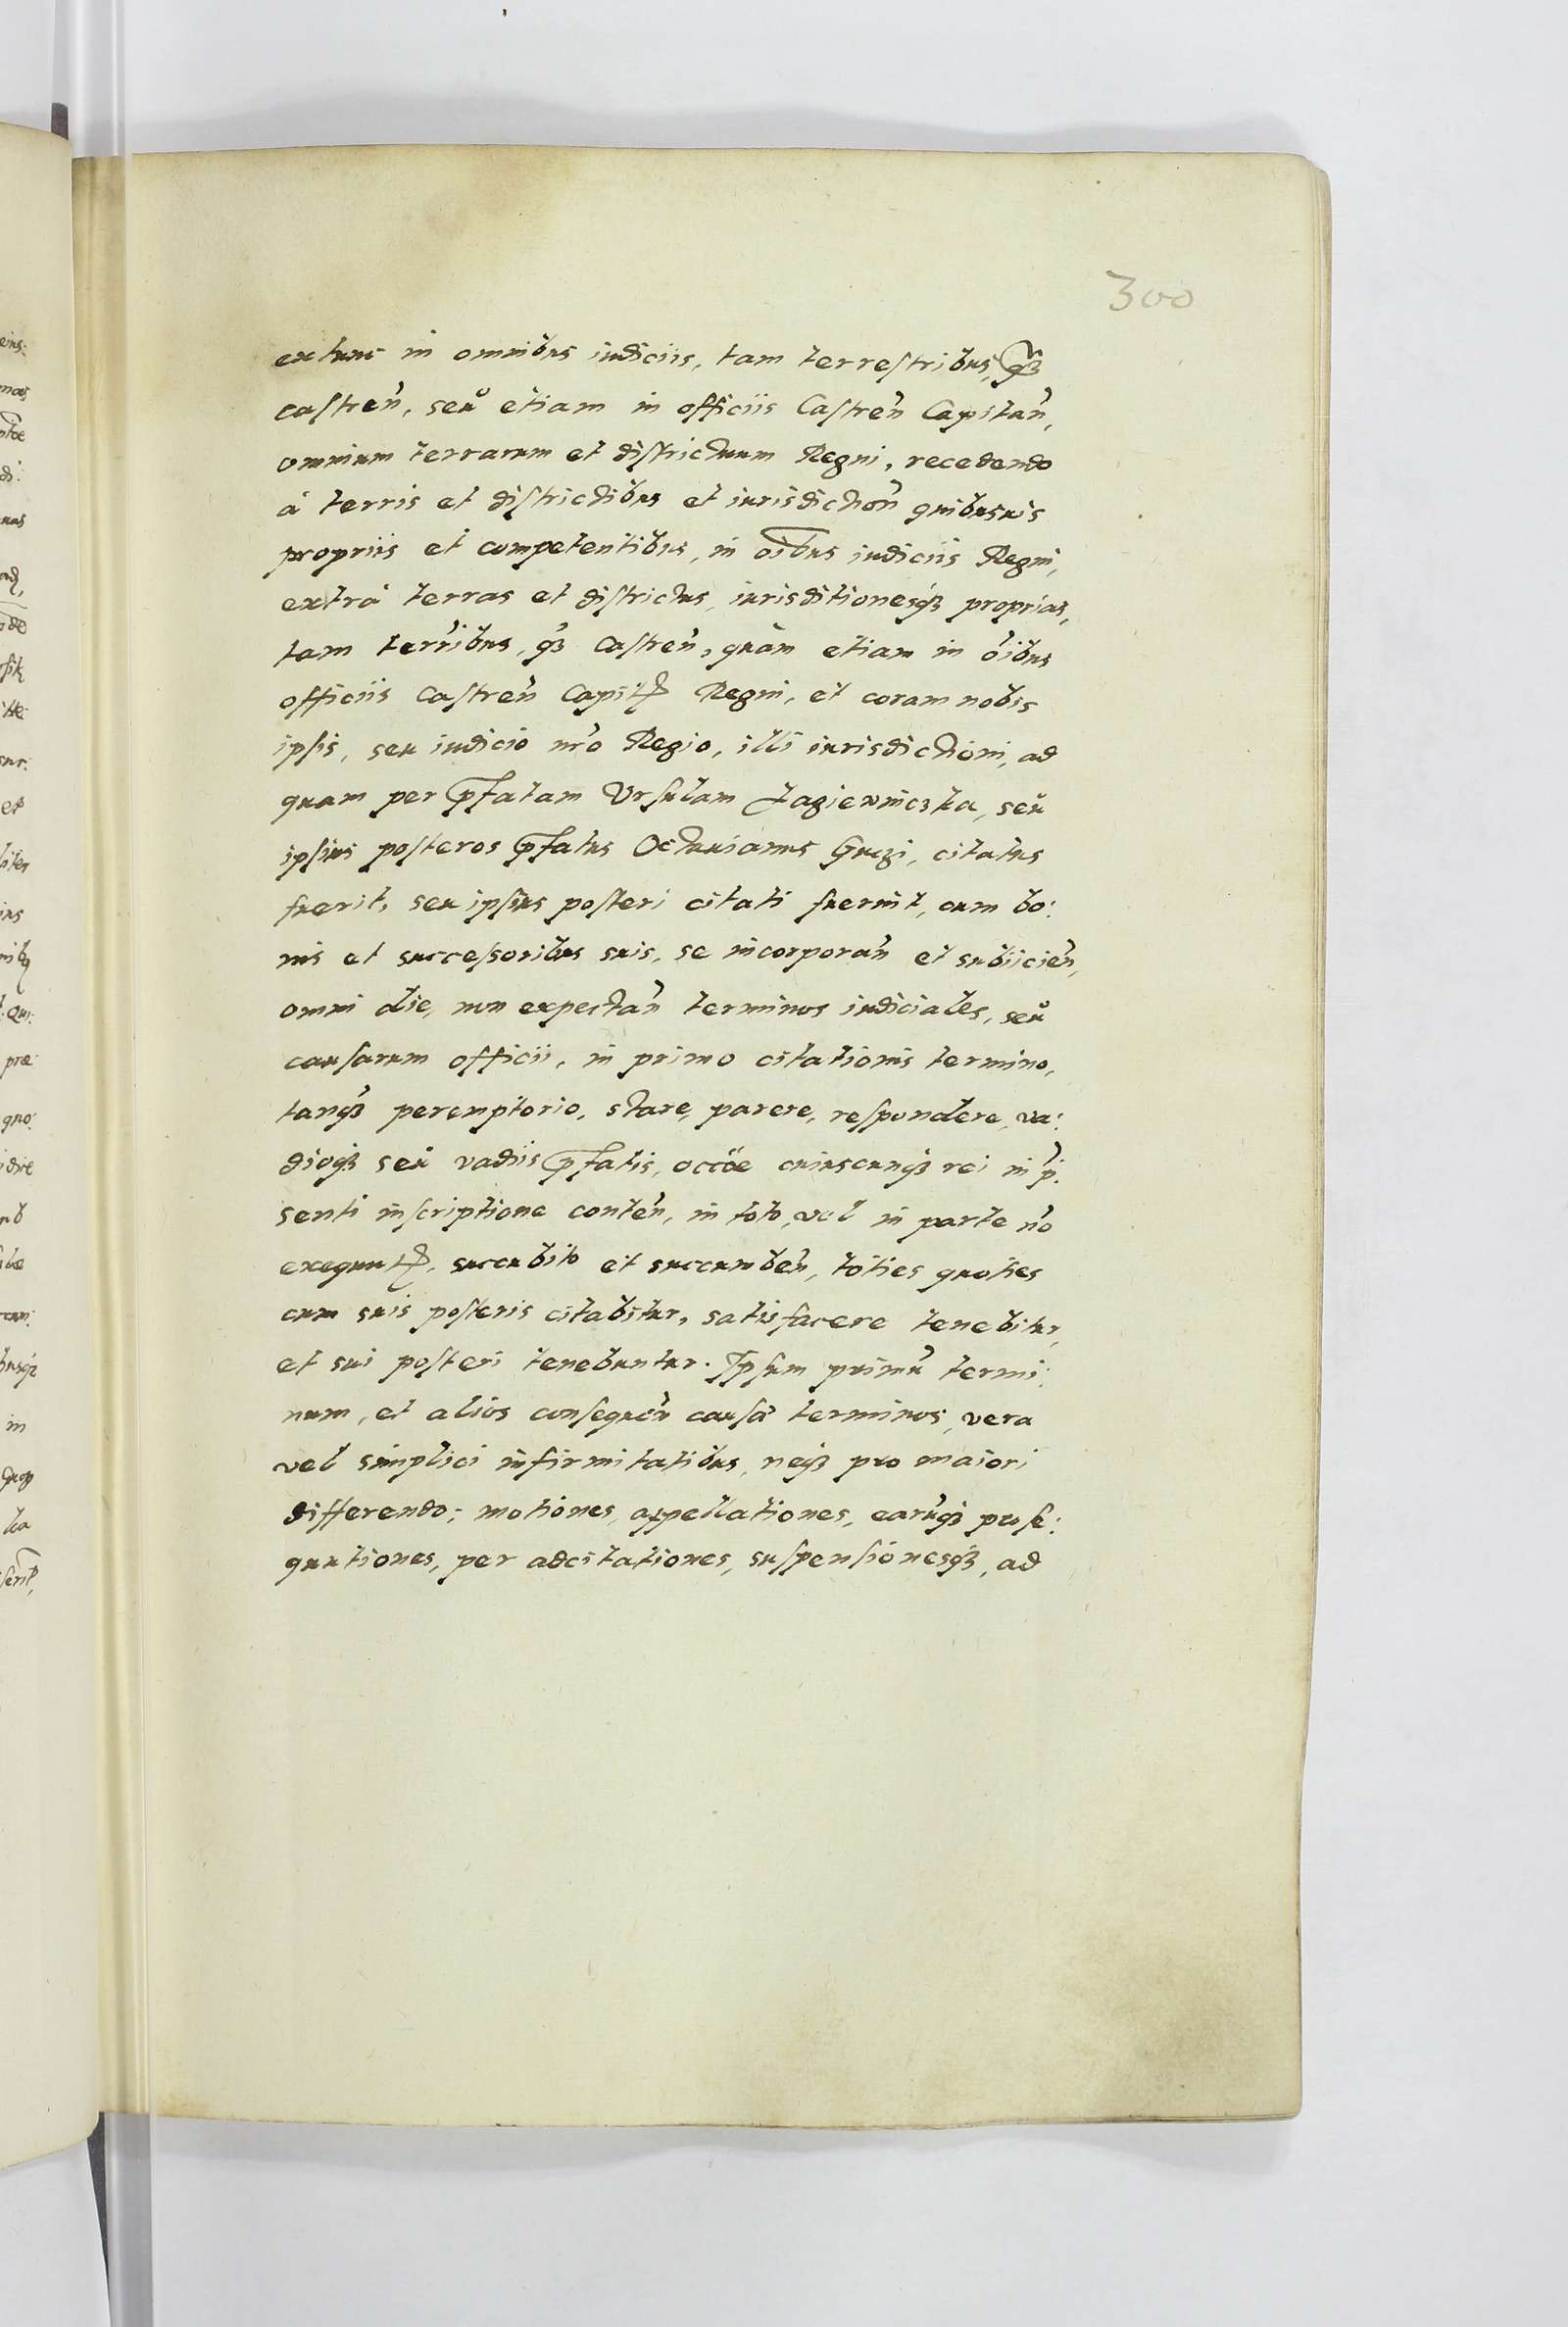 300
extunc in omnibus iudiciis, tam terrestribus, qȝ
castreñ, seu etiam in officiis Castreñ Capitañ,
omnium terrarum et districtuum Regni, recedendo
à terris et districtibus et iurisdictioñ quibusuis
propriis et competentibus, in oĩbus iudiciis Regni,
extrà terras et districtus, iurisditionesqȝ proprias,
tam terr̃ibus, qȝ castreñ, quàm etiam in oĩbus
officiis castreñ Capit Regni, et coram nobis
ipsis, seu iudicio nr̃o Regio, illi iurisdictioni, ad
quam per p̃fatam Vrsulam Łagiewniczka, seu
ipsius posteros p̃fatus Octauianus Guczi, citatus
fuerit, seu ipsius posteri citati fuerint, cum bo:
nis et successoribus suis, se incorporañ et subiicieñ,
omni die, non expectañ terminos iudiciales, seu
causarum officii, in primo citationis termino,
tanqȝ peremptorio, stare, parere, respondere, va:
dioqȝ seu vadiis p̃fatis, occõe cuiuscunqȝ rei in p̃:
senti inscriptione conteñ, in toto, vel in parte nõ
exequut, succubito et succumbeñ, toties quoties
cum suis posteris citabitur, satisfacere tenebitur,
et sui posteri tenebuntur. Ipsum primũ termi:
num, et alios consequeñ causã terminos, vera
vel simplici infirmitatibus, neqȝ pro maiori
differendo; motiones, appellationes, earũqȝ prose:
quutiones, per adcitationes, suspensionesqȝ, ad